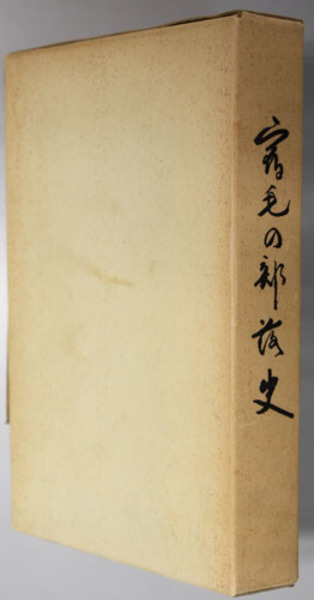 宿毛の部落史